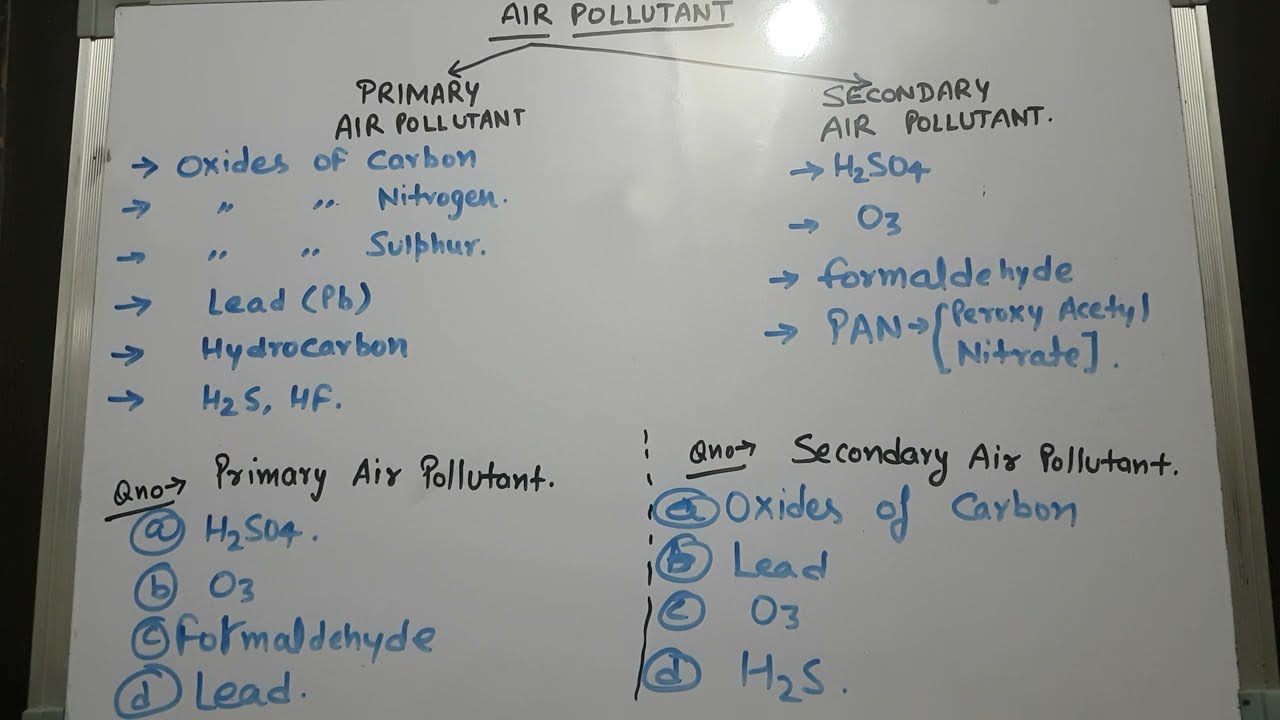 AIR POLLUTANT
PRIMARY
AIR POLLUTANT
→ Oxides of Carbon
→ " " Nitrogen.
→ " " Sulphur.
→ Lead (Pb)
→ Hydrocarbon
→ H₂S, HF.
SECONDARY
AIR POLLUTANT.
→ H₂SO₄
→ O₃
→ formaldehyde
→ PAN → [Peroxy Acetyl
Nitrate].
Qno→ Primary Air Pollutant.
(a) H₂SO₄.
(b) O₃
(c) formaldehyde
(d) Lead.
Qno→ Secondary Air Pollutant.
(a) Oxides of Carbon
(b) Lead
(c) O₃
(d) H₂S.